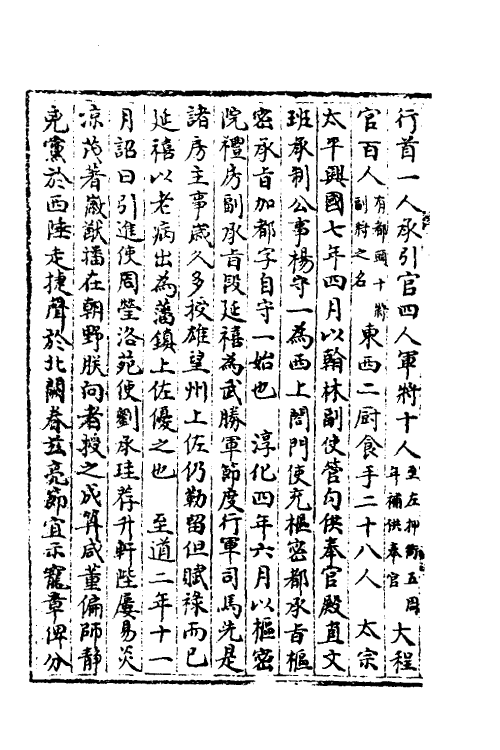 行首一人承引官四人軍將十人至左押衙五周年補供奉官大程
官百人有都頭十將副將之名東西二厨食手二十八人　太宗
太平興國七年四月以翰林副使管勾供奉官殿直文
班承制公事楊守一為西上閤門使充樞密都承旨樞
密承旨加都字自守一始也　淳化四年六月以樞密
院禮房副承旨段延禧為武勝軍節度行軍司馬先是
諸房主事歲久多授雄望州上佐仍勒留但賦祿而已
延禧以老病出為藩鎮上佐優之也　至道二年十一
月詔曰引進使周瑩洛苑使劉承珪荐升軒陛屢易炎
凉茂著徽猷播在朝野朕向者授之成筭咸董偏師靜
兇黨於西陲走捷聲於北闕眷茲亮節宜示寵章俾分